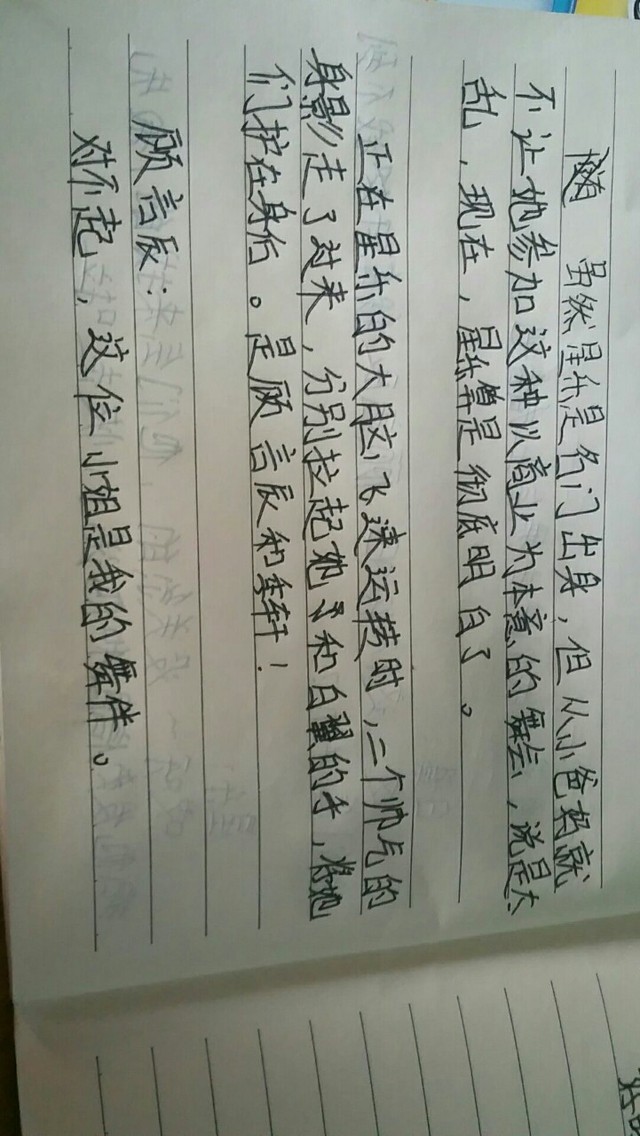 虽然星乐是名门出身，但从小爸妈就
不让她参加这种以商业为本意的舞会，说是太
乱，现在，星乐算是彻底明白了。
正在星乐的大脑飞速运转时，二个帅气的
身影走了过来，分别拉起她和白翼的手，将她
们护在身后。是顾言辰和李轩！
顾言辰：
对不起，这位小姐是我的舞伴。